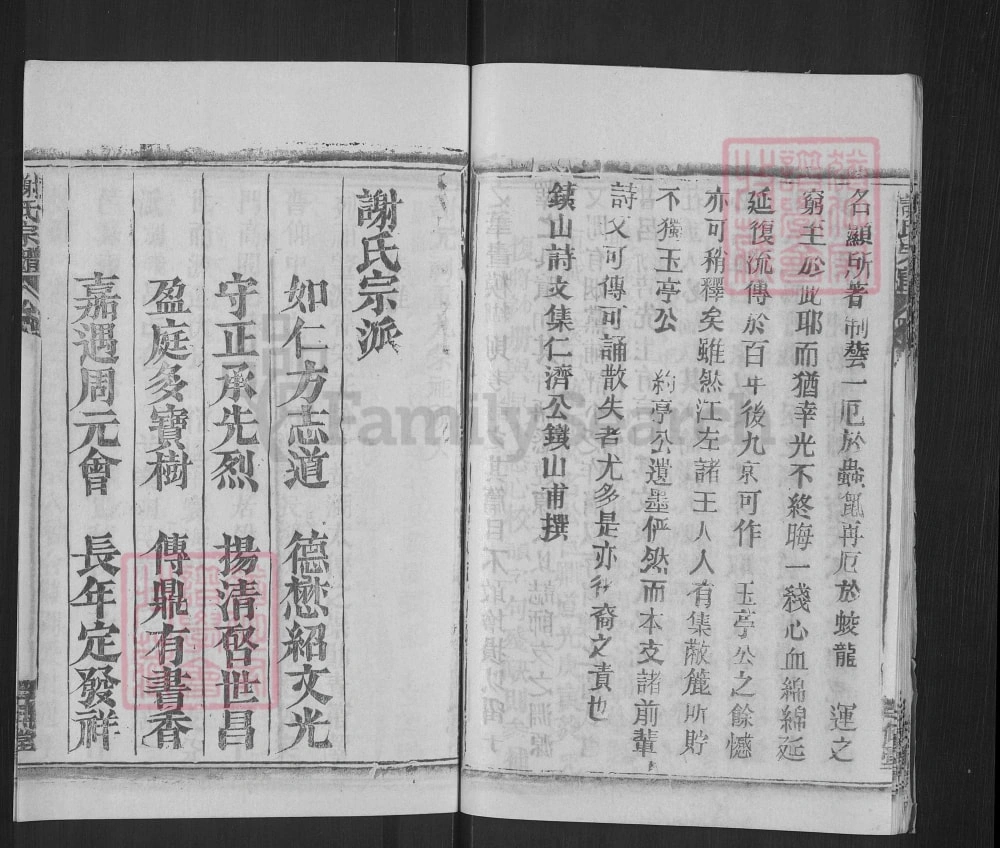 名顯所著制藝一厄於蟲氈再厄於蛟龍 運之
窮至於此耶而猶幸光不終晦一綫心血綿綿延
延復流傳於百年後九京可作 玉亭公之餘憾
亦可稍釋矣雖然江左諸王人人有集敝簏所貯
不獨玉亭公 約亭公遺墨儼然而本支諸前輩
詩文可傳可誦散失者尤多是亦後裔之責也
鐵山詩文集仁濟公鐵山甫撰
謝氏宗派
如仁方志道 德懋紹文光
守正承先烈 揚清啓世昌
盈庭多寶樹 傳鼎有書香
嘉遇周元會 長年定發祥
謝氏宗譜
FamilySearch